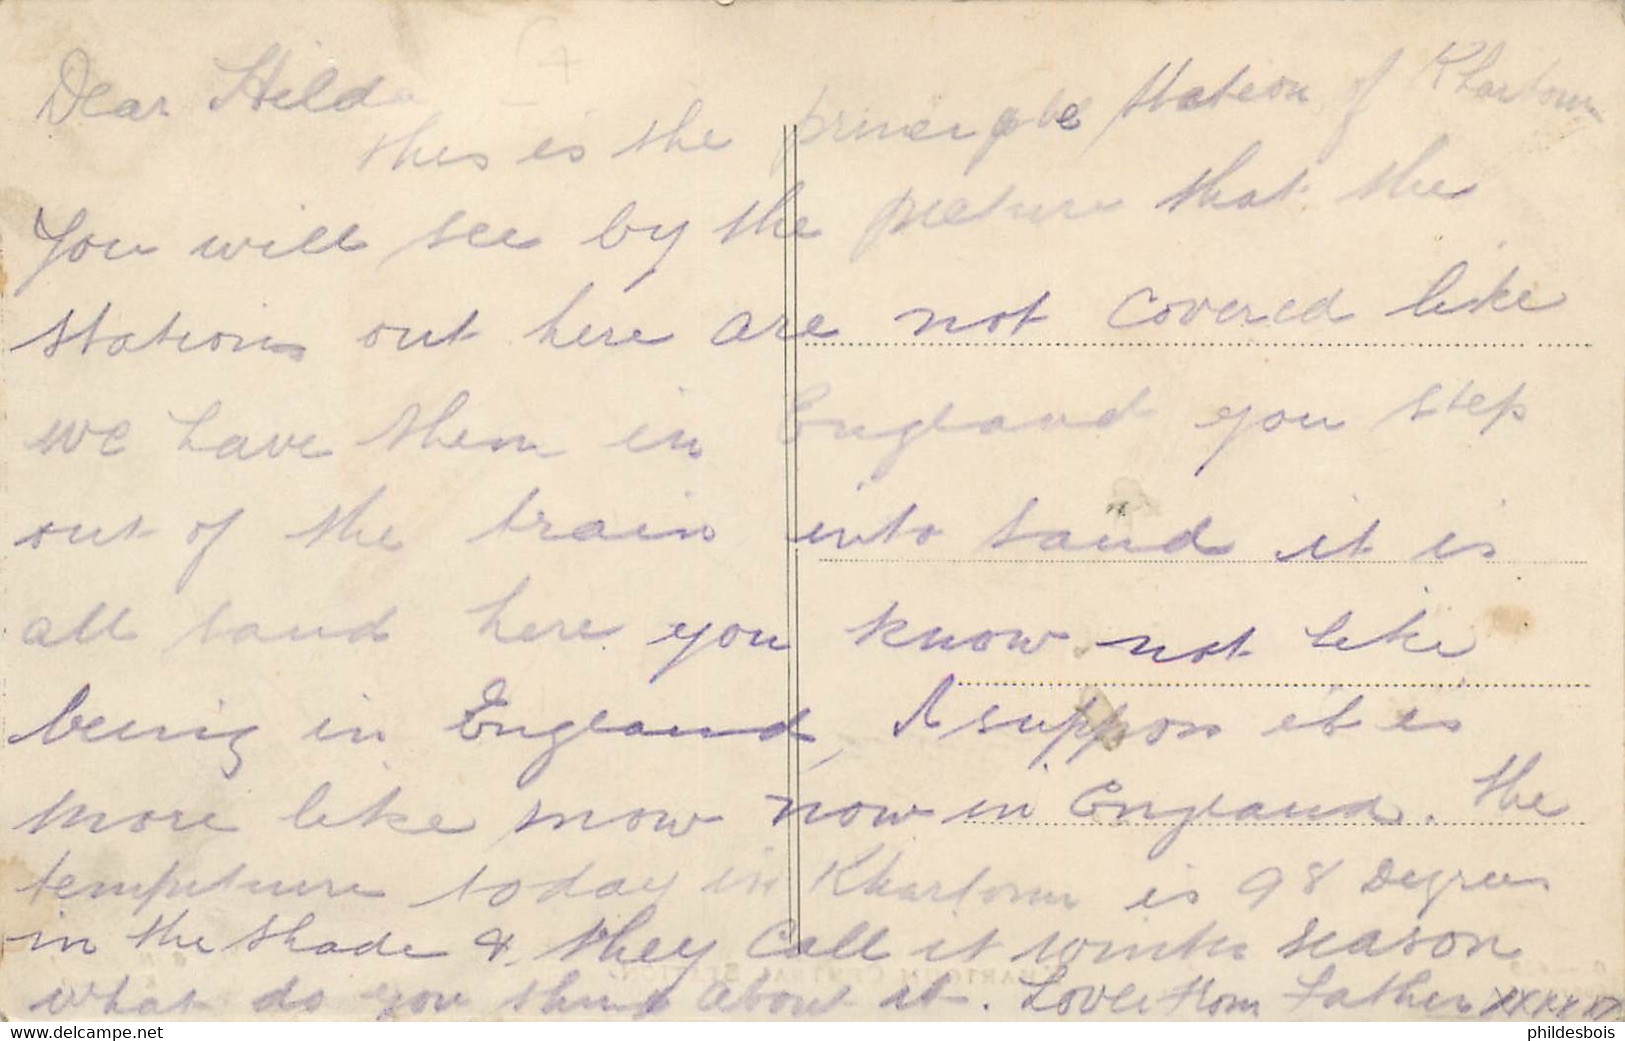 Dear Hilda
this is the principle station of Khartoum
You will see by the picture that the
stations out here are not covered like
we have them in England you step
out of the train into sand it is
all sand here you know not like
being in England, I suppose it is
more like snow now in England. The
tempeture today in Khartoum is 98 Degrees
in the shade & they call it winter season
what do you think about it. Love from Father xxxxx
KHARTOUM CENTRAL STATION
www.delcampe.net
phildesbois